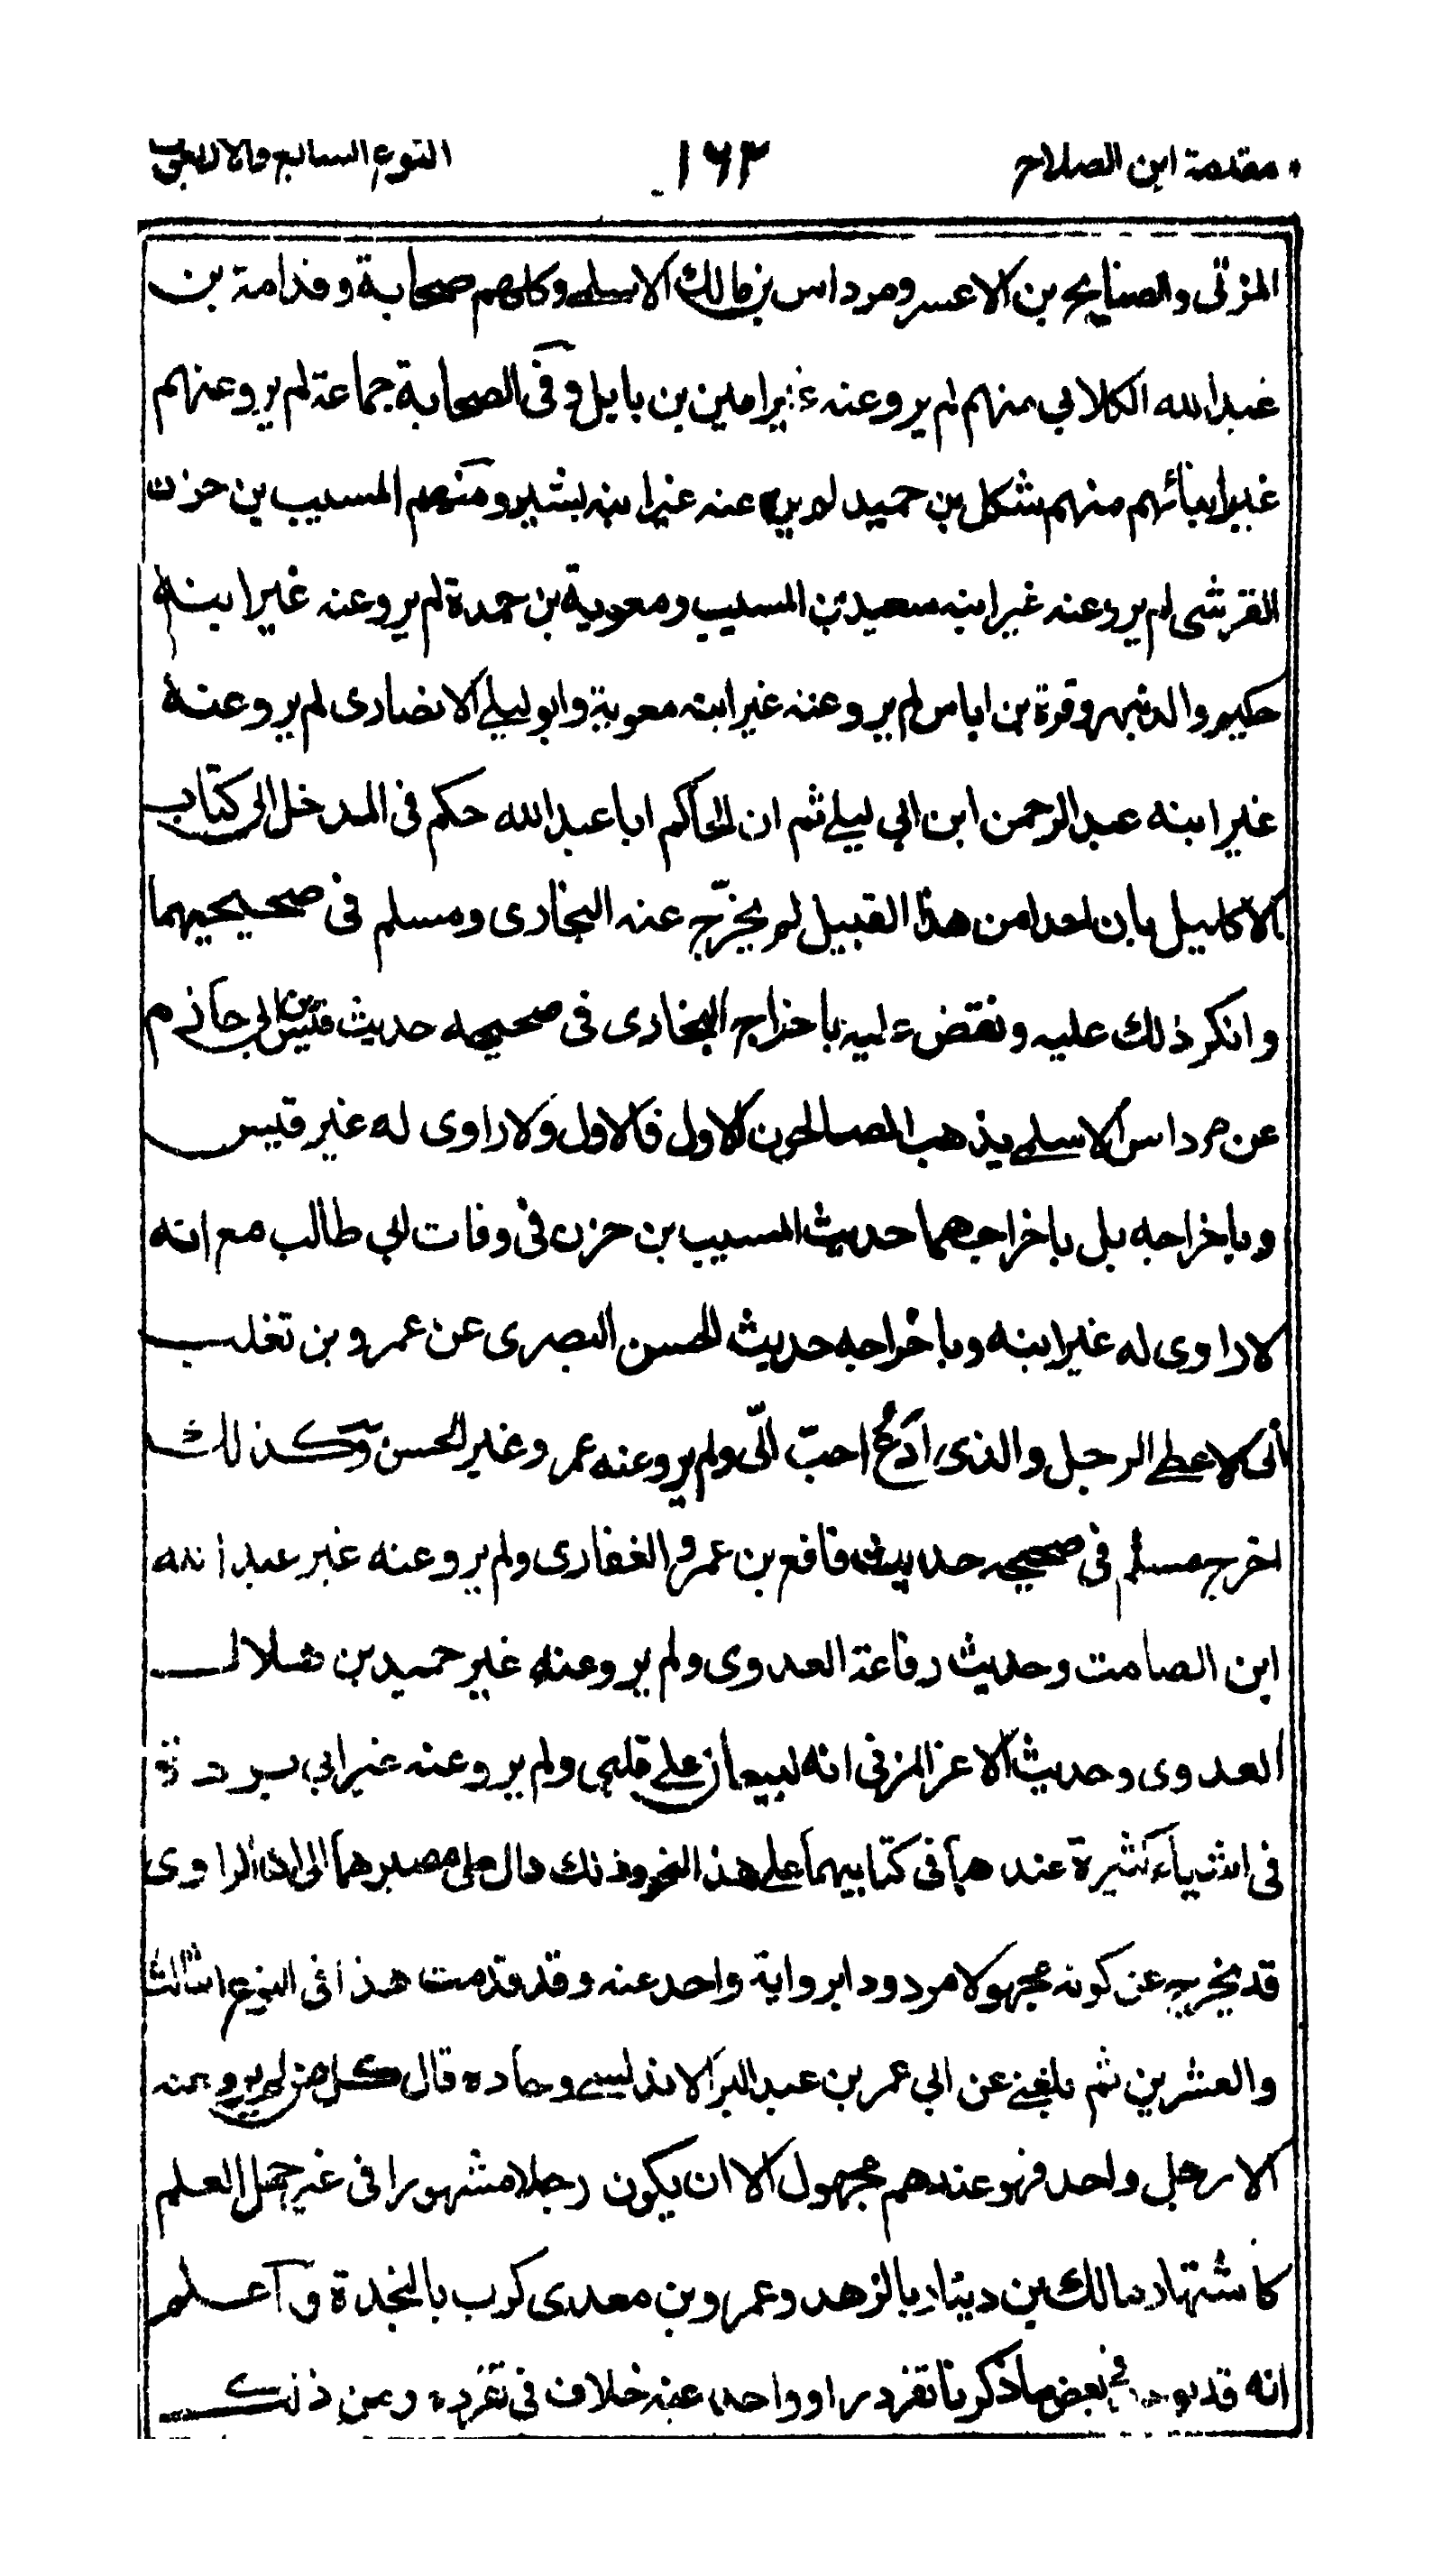 مقدمة ابن الصلاح
١٦٣
النوع السابع والاربعين
المزنى والصنابح بن الاعسر ومرداس بن مالك الاسلمى وكلهم صحابة وقدامة بن
عبدالله الكلابى منهم لم يرو عنه غير ايمن بن نابل وفى الصحابة جماعة لم يرو عنهم
غير ابنائهم منهم شكل بن حميد لم يرو عنه غير ابنه بشير ومنهم المسيب بن حزن
القرشى لم يرو عنه غير ابنه سعيد بن المسيب ومعوية بن حيدة لم يرو عنه غير ابنه
حكيم والد بهز وقرة بن اياس لم يرو عنه غير ابنه معوية وابو ليلى الانصارى لم يرو عنه
غير ابنه عبدالرحمن ابن ابى ليلى ثم ان الحاكم ابا عبدالله حكم فى المدخل الى كتاب
الاكليل بان احدا من هذا القبيل لم يخرّج عنه البخارى ومسلم فى صحيحيهما
وانكر ذلك عليه ونقض عليه باخراج البخارى فى صحيحه حديث قيس بن ابى حازم
عن مرداس الاسلمى يذهب الصالحون الاول فالاول ولا راوى له غير قيس
وباخراجه بل باخراجهما حديث المسيب بن حزن فى وفات ابى طالب مع انه
لا راوى له غير ابنه وباخراجه حديث الحسن البصرى عن عمرو بن تغلب
انى لاعطى الرجل والذى ادع احبّ الىّ ولم يرو عنه عمرو غير الحسن وكذلك
اخرج مسلم فى صحيحه حديث فافع بن عمرو الغفارى ولم يرو عنه غير عبدالله
ابن الصامت وحديث رفاعة العدوى ولم يرو عنه غير حميد بن هلال
العدوى وحديث الاغر المزنى انه ليغان على قلبى ولم يرو عنه غير ابى بردة
فى اشياء كثيرة عندهما فى كتابيهما على هذا النحو وذلك دال على مصيرهما الى ان الراوى
قد يخرج عن كونه مجهولا مردودا برواية واحد عنه وقد قدمت هذا فى النوع الثالث
والعشرين ثم بلغنى عن ابى عمر بن عبد البر الاندلسى وجادة قال كل من لم يرو عنه
الا رجل واحد فهو عندهم مجهول الا ان يكون رجلا مشهورا فى غير حمل العلم
كاشتهار مالك بن دينار بالزهد وعمرو بن معدى كرب بالنجدة واعلم
انه قد يوجد فى بعض ما ذكرنا تفرد راو واحد عنه خلاف فى تفرده ومن ذلك